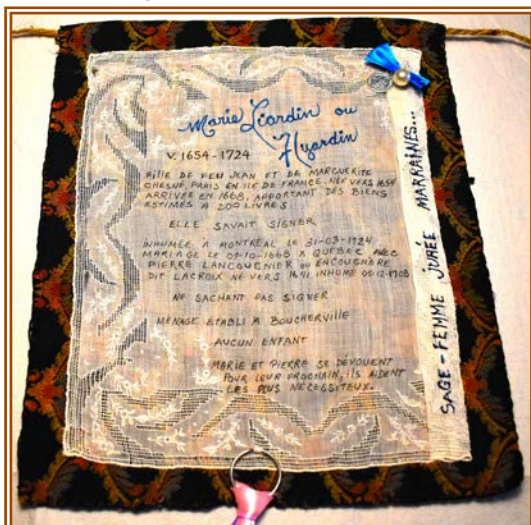 Marie Liardin ou
Hyardin
V. 1654 - 1724
FILLE DE FEU JEAN ET DE MARGUERITE
CHESNÉ, PARIS EN ILE DE FRANCE. NÉE VERS 1654
ARRIVÉE EN 1668, APPORTANT DES BIENS
ESTIMÉS À 200 LIVRES.
ELLE SAVAIT SIGNER
INHUMÉE À MONTRÉAL LE 31-03-1724
MARIAGE LE 09-10-1668 À QUÉBEC AVEC
PIERRE LANCOUGNIER OU ENCOUGNÈRE
DIT LACROIX NÉ VERS 1641 INHUMÉ 09-12-1708
NE SACHANT PAS SIGNER
MÉNAGE ÉTABLI À BOUCHERVILLE
AUCUN ENFANT
MARIE ET PIERRE SE DÉVOUENT
POUR LEUR PROCHAIN, ILS AIDENT
LES PLUS NÉCESSITEUX.
SAGE-FEMME JURÉE MARRAINES...